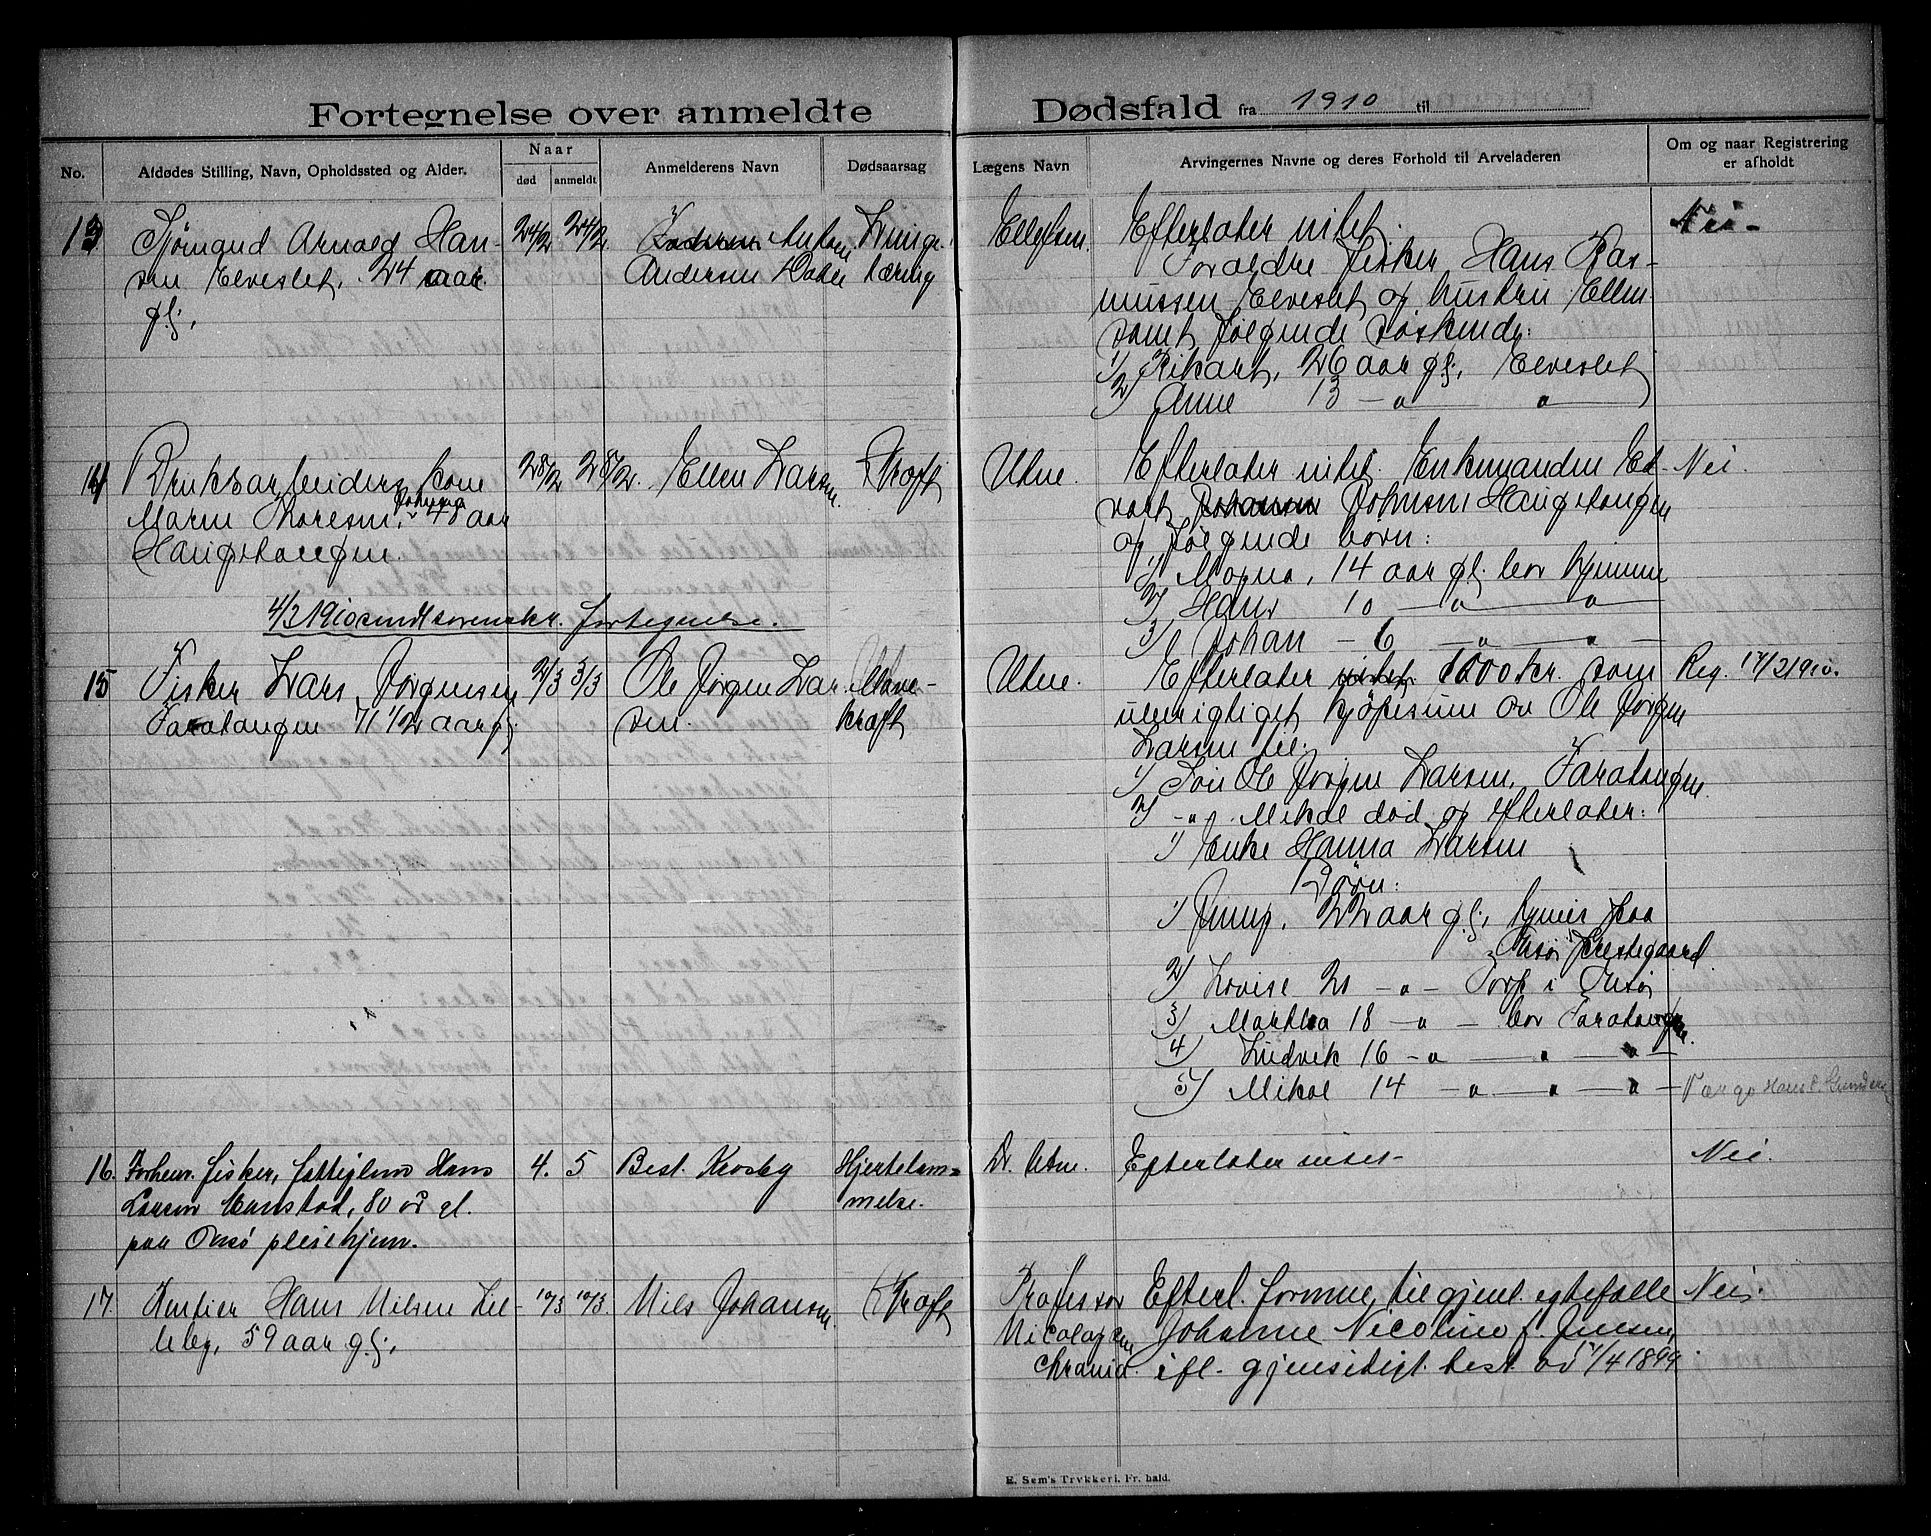 Fortegnelse over anmeldte Dødsfald fra 1910 til
No.
Afdødes Stilling, Navn, Opholdssted og Alder.
Naar
død
anmeldt
Anmelderens Navn
Dødsaarsag
Lægens Navn
Arvingernes Navne og deres Forhold til Arveladeren
Om og naar Registrering
er afholdt
13
Sjømand Arnold Han-
sen Elveslet, 24 aar
gl.
24/2
24/2
Anton
Andersen Dalen
Lunge
tæring
Ellefsen.
Efterlater intet.
Foraldre fisker Hans Ras-
mussen Elveslet og hustru Ellen
samt følgende søskende:
1) Rikart, 26 aar gl., Elveslet
2) Anne 13 — " — "
Nei -
14
Bruksarbeiders kone
Johanna
Maren Thoresen, 48 aar
Haugstangen.
28/2
28/2.
Ellen Larsen
Kræft
Utne.
Efterlater intet. Enkemanden Ed-
vart Johansen Johnsen Haugstangen
og følgende børn:
1) Magna, 14 aar gl. bor hjemme
2) Hans 10 — " — "
3) Johan - 6 — " — " —
Nei.
4/3 1910 sendt sorenskr. fortegnelse.
15
Fisker Lars Jørgensen
Faratangen 71 1/2 aar gl.
2/3
3/3
Ole Jørgen Lar-
sen.
Mave-
kræft
Utne.
Efterlater intet. 1000 kr. som
uberigtiget kjøpesum av Ole Jørgen
Larsen til:
1) Søn Ole Jørgen Larsen, Faratangen.
2) - " - Mikal død og efterlater:
1) Enke Hanna Larsen
Børn:
1) Jenny, 22 aar gl., tjener paa
Onsø Prestegaard.
2) Lovise 20 - " - Torp i Onsø
3) Martha 18 - " - bor Faratangen.
4) Ludvik 16 - " — " — " —
5) Mikal 14 — " — " — " —
Reg. 17/3 1910.
Værge Hans E. Gunders
16.
Forhenv. fisker, fattiglem Hans
Larsen Enhustad, 80 år gl.
paa Onsø pleiehjem.
4.
5
Best. Krosby
Hjertelam-
melse.
Dr. Utne.
Efterlater intet -
Nei.
17.
Rentier Hans Nilsen Lil-
leby, 59 aar gl.
10/3
10/3.
Nils Johansen
Kræft
Professor
Nicolaysen
Chrania.
Efterl. formue, tilgjenl. egtefælle
Johanne Nicoline f. Jensen,
ifl. gjensidigt test. av 17/4 1899.
Nei.
E. Sem's Trykkeri, Fr. hald.